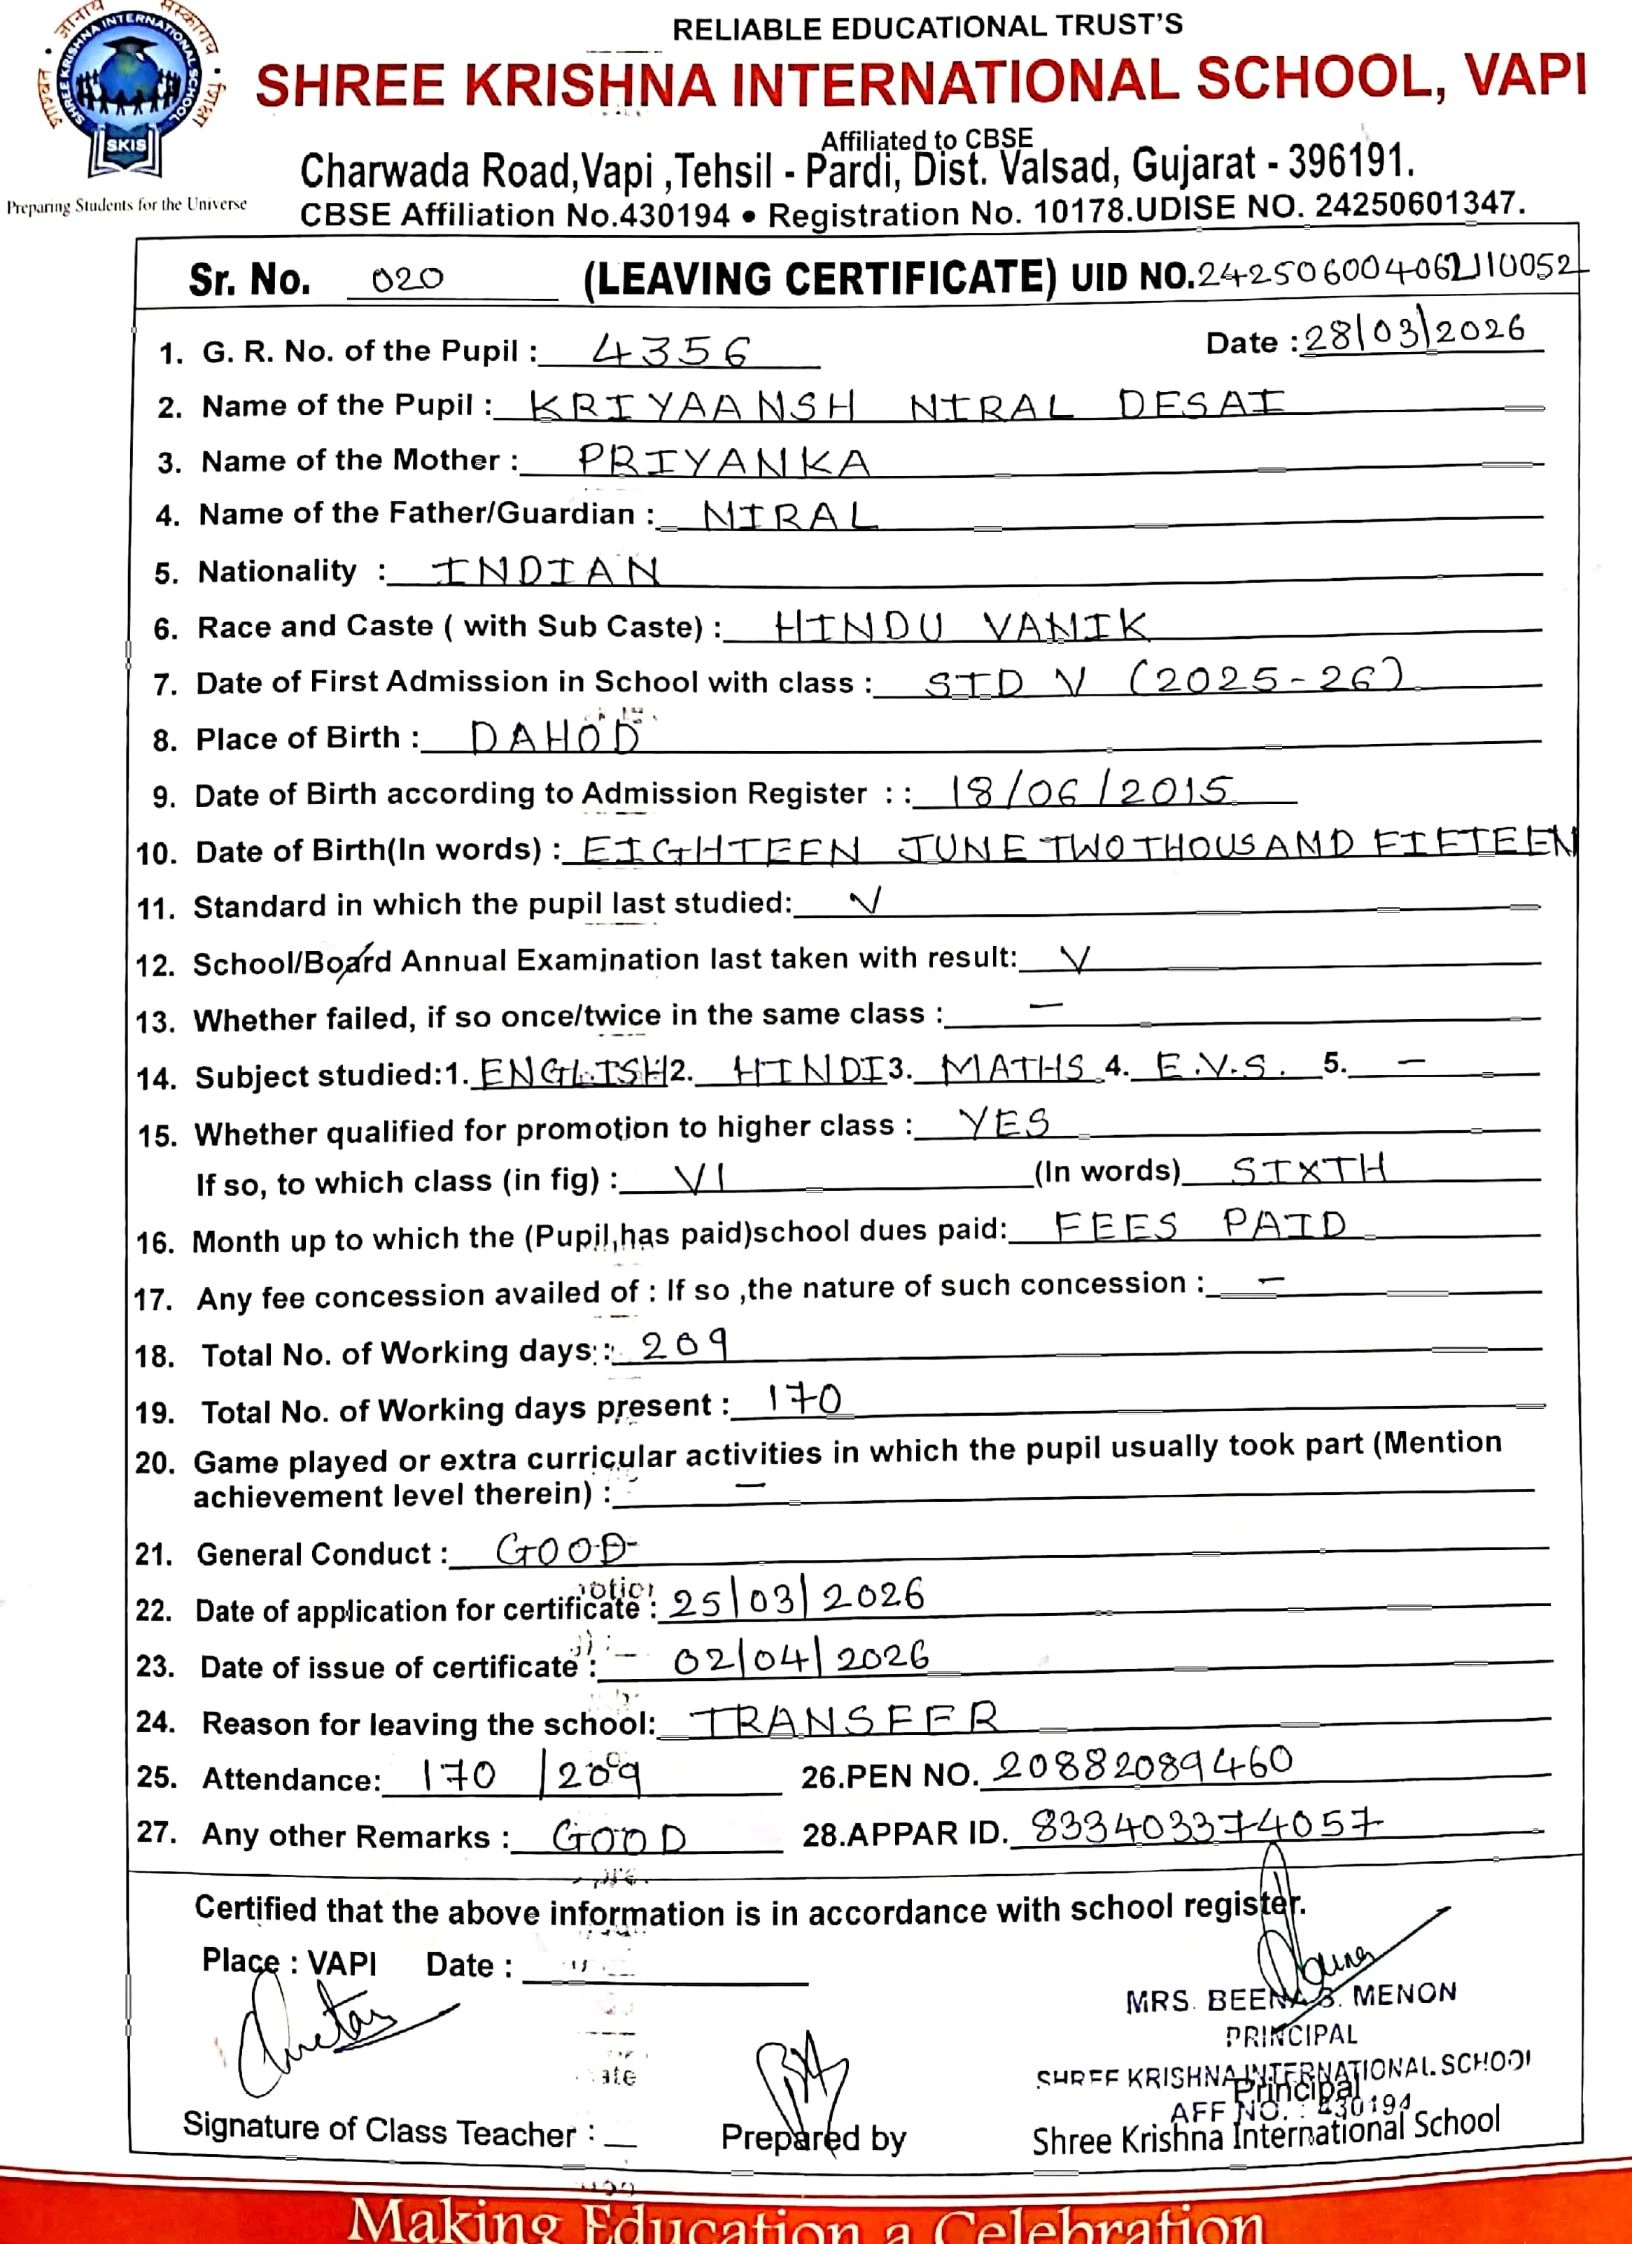 RELIABLE EDUCATIONAL TRUST'S
SHREE KRISHNA INTERNATIONAL SCHOOL, VAPI
SHREE KRISHNA INTERNATIONAL SCHOOL
SKIS
Preparing Students for the Universe
Affiliated to CBSE
Charwada Road,Vapi ,Tehsil - Pardi, Dist. Valsad, Gujarat - 396191.
CBSE Affiliation No.430194 • Registration No. 10178.UDISE NO. 24250601347.
Sr. No. 020 (LEAVING CERTIFICATE) UID NO.
1. G. R. No. of the Pupil : 4356 Date : 28/03/2026
2. Name of the Pupil : KRIYAANSH NIRAL DESAI
3. Name of the Mother : PRIYANKA
4. Name of the Father/Guardian : NIRAL
5. Nationality : INDIAN
6. Race and Caste ( with Sub Caste) : HINDU VANIK
7. Date of First Admission in School with class : STD V (2025-26)
8. Place of Birth : DAHOD
9. Date of Birth according to Admission Register : : 18/06/2015
10. Date of Birth(In words) : EIGHTEEN JUNE TWO THOUSAND FIFTEEN
11. Standard in which the pupil last studied: V
12. School/Board Annual Examination last taken with result: V
13. Whether failed, if so once/twice in the same class : –
14. Subject studied:1. ENGLISH 2. HINDI 3. MATHS 4. E.V.S. 5. –
15. Whether qualified for promotion to higher class : YES
If so, to which class (in fig) : VI (In words) SIXTH
16. Month up to which the (Pupil,has paid)school dues paid: FEES PAID
17. Any fee concession availed of : If so ,the nature of such concession : –
18. Total No. of Working days: : 209
19. Total No. of Working days present : 170
20. Game played or extra curricular activities in which the pupil usually took part (Mention
achievement level therein) : –
21. General Conduct : GOOD
22. Date of application for certificate : 25/03/2026
23. Date of issue of certificate : 02/04/2026
24. Reason for leaving the school: TRANSFER
25. Attendance: 170 /209 26.PEN NO. 20882089460
27. Any other Remarks : GOOD 28.APPAR ID. 833403374057
Certified that the above information is in accordance with school register.
Place : VAPI Date :
MRS. BEENA B. MENON
PRINCIPAL
SHREE KRISHNA INTERNATIONAL SCHOOL
Principal
AFF NO. : 430194
Signature of Class Teacher : Prepared by Shree Krishna International School
Making Education a Celebration